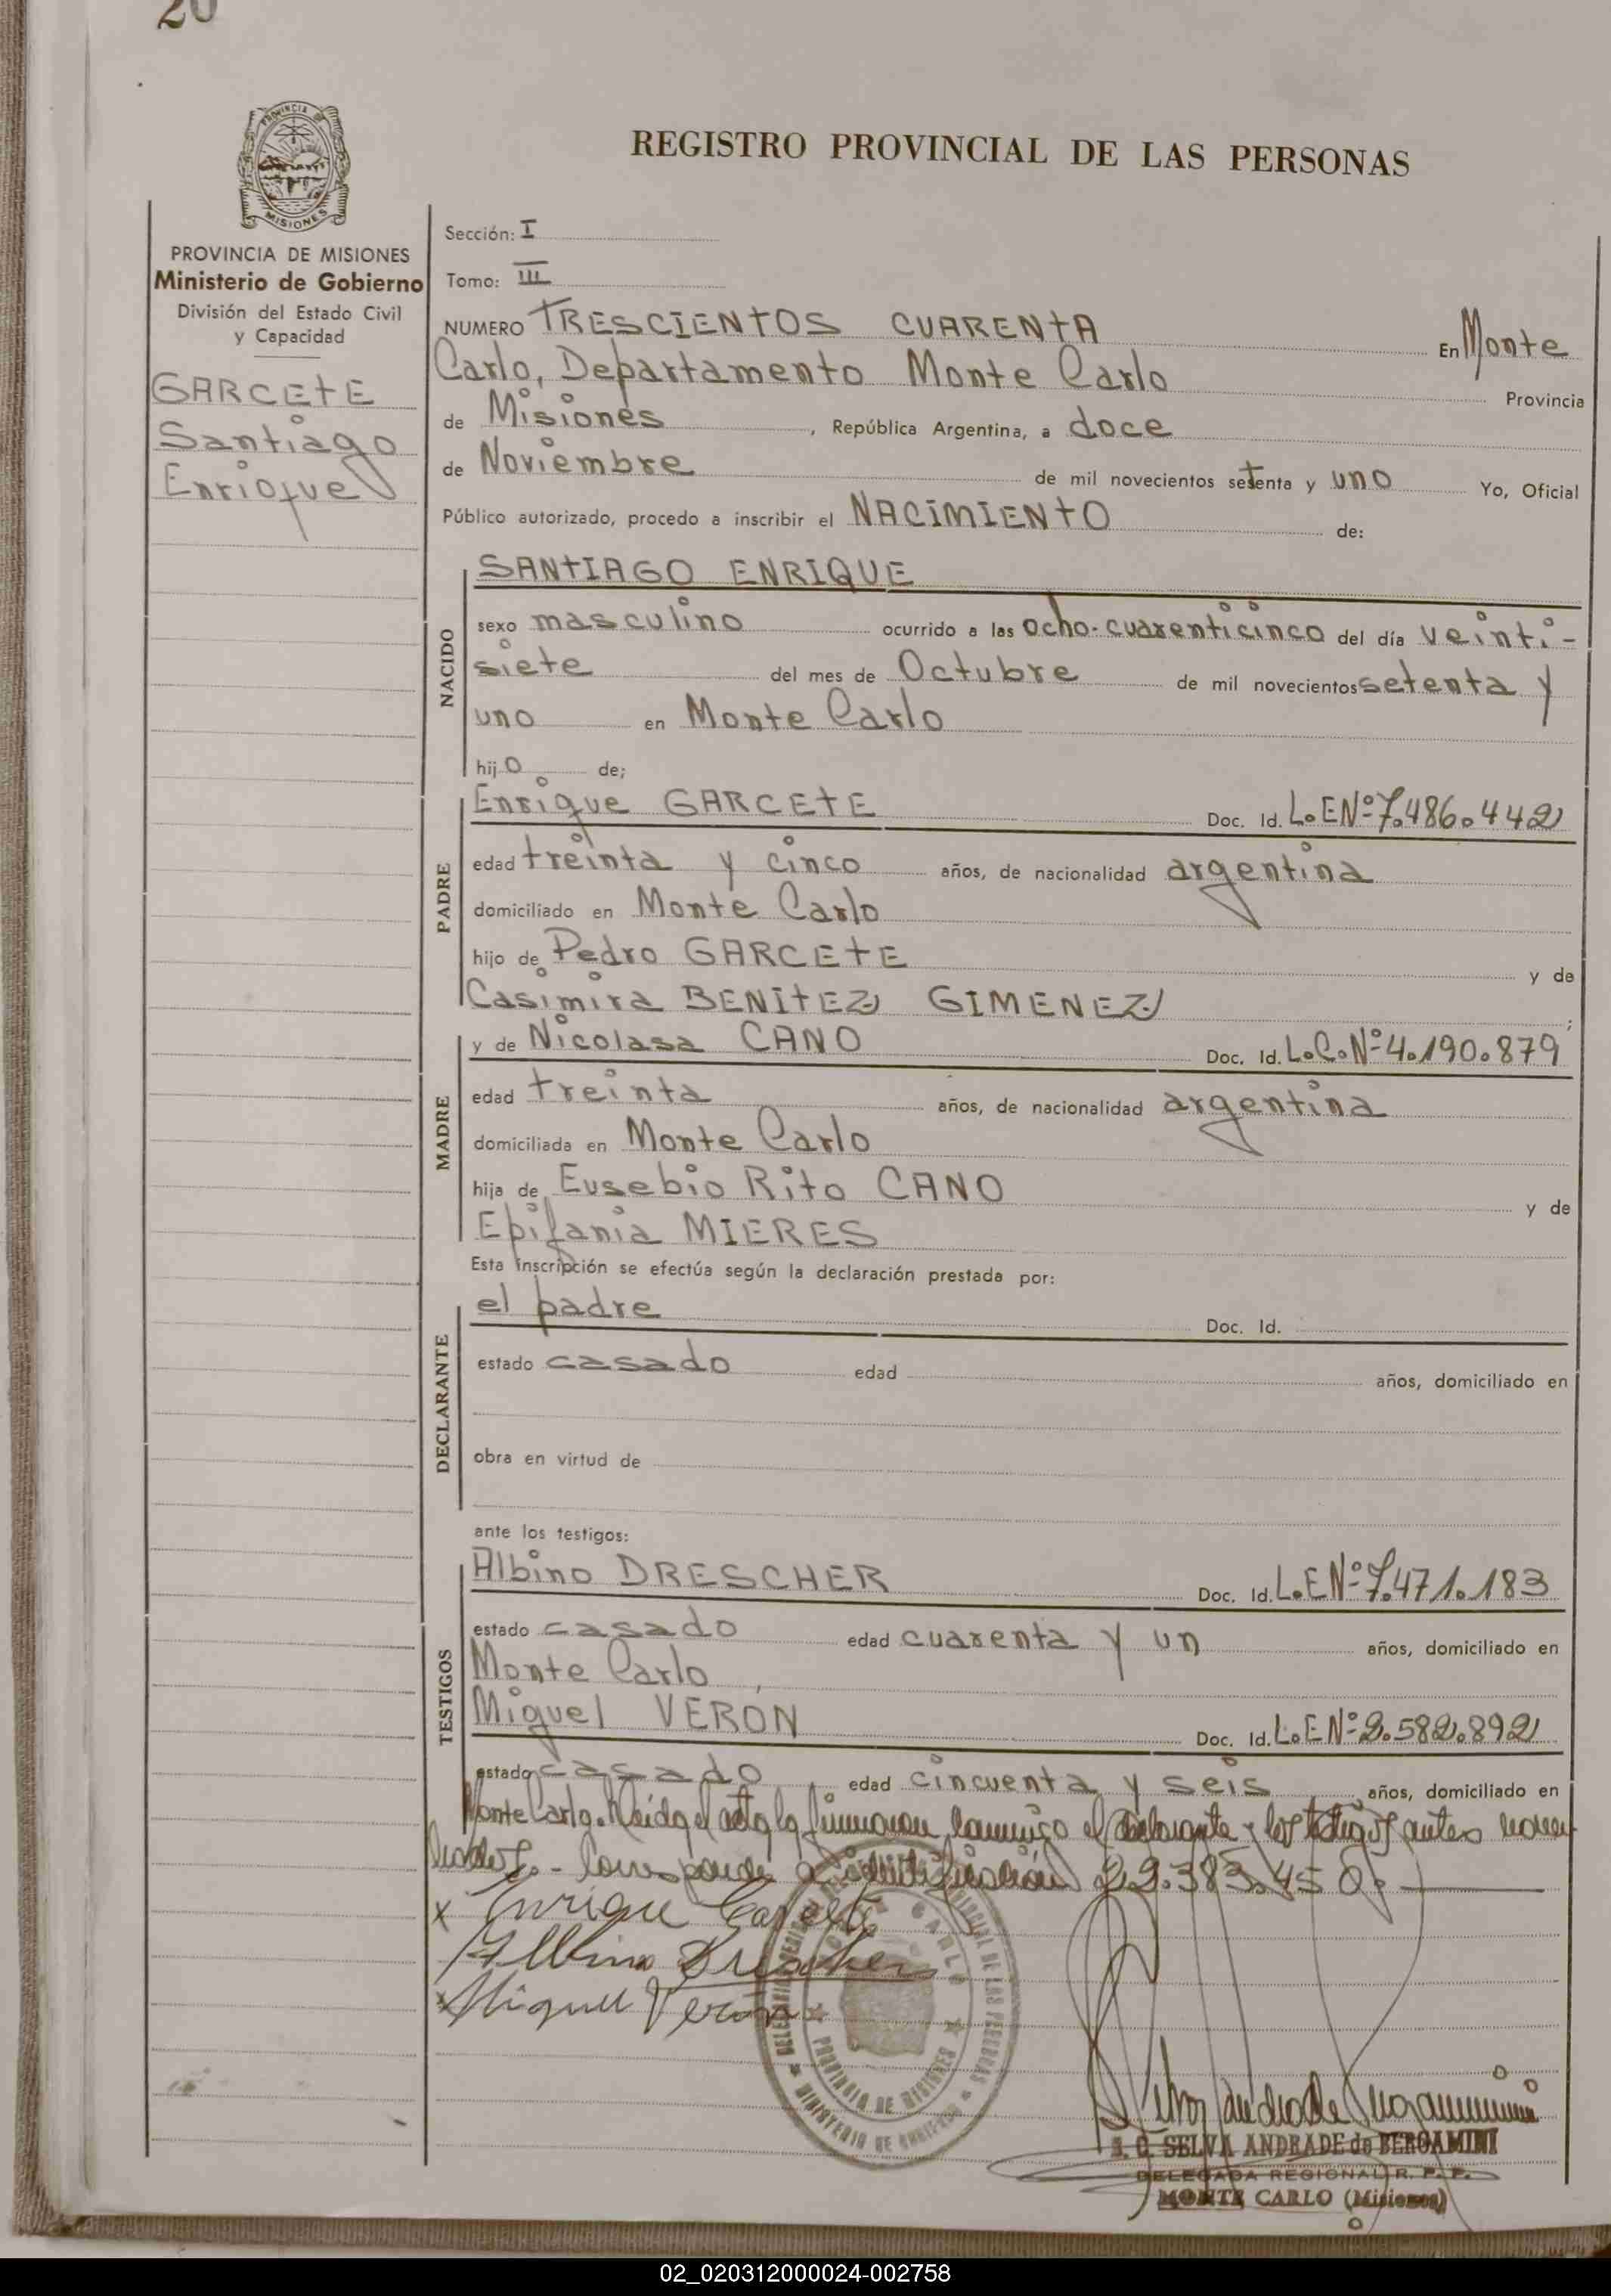 20
PROVINCIA DE
MISIONES
REGISTRO PROVINCIAL DE LAS PERSONAS
PROVINCIA DE MISIONES
Ministerio de Gobierno
División del Estado Civil
y Capacidad
GARCETE
Santiago
Enrique
Sección: I
Tomo: III
NUMERO TRESCIENTOS CUARENTA En Monte
Carlo, Departamento Monte Carlo Provincia
de Misiones, República Argentina, a doce
de Noviembre de mil novecientos setenta y uno Yo, Oficial
Público autorizado, procedo a inscribir el NACIMIENTO de:
NACIDO
SANTIAGO ENRIQUE
sexo masculino ocurrido a las ocho-cuarenticinco del día veinti-
siete del mes de Octubre de mil novecientos setenta y
uno en Monte Carlo
hijo de;
PADRE
Enrique GARCETE Doc. Id. L.E Nº 7.486.442
edad treinta y cinco años, de nacionalidad argentina
domiciliado en Monte Carlo
hijo de Pedro GARCETE y de
Casimira BENITEZ GIMENEZ ;
MADRE
y de Nicolasa CANO Doc. Id. L.C. Nº 4.190.879
edad treinta años, de nacionalidad argentina
domiciliada en Monte Carlo
hija de Eusebio Rito CANO y de
Epifania MIERES
Esta inscripción se efectúa según la declaración prestada por:
DECLARANTE
el padre Doc. Id.
estado casado edad años, domiciliado en
obra en virtud de
ante los testigos:
TESTIGOS
Albino DRESCHER Doc. Id. L.E Nº 7.471.183
estado casado edad cuarenta y un años, domiciliado en
Monte Carlo,
Miguel VERON Doc. Id. L.E Nº 2.582.892
estado casado edad cincuenta y seis años, domiciliado en
Monte Carlo. Leida el acta la firmaron conmigo el declarante y los testigos antes nom
brados.- Corresponde a identificación 22.383.450.
x Enrique Garcete
Albino Drescher
x Miguel Verón
PROVINCIA DE MISIONES
MINISTERIO DE GOBIERNO
Selva Andrade de Bergamini
S. C. SELVA ANDRADE de BERGAMINI
DELEGADA REGIONAL R. P. P.
MONTE CARLO (Misiones)
02_020312000024-002758